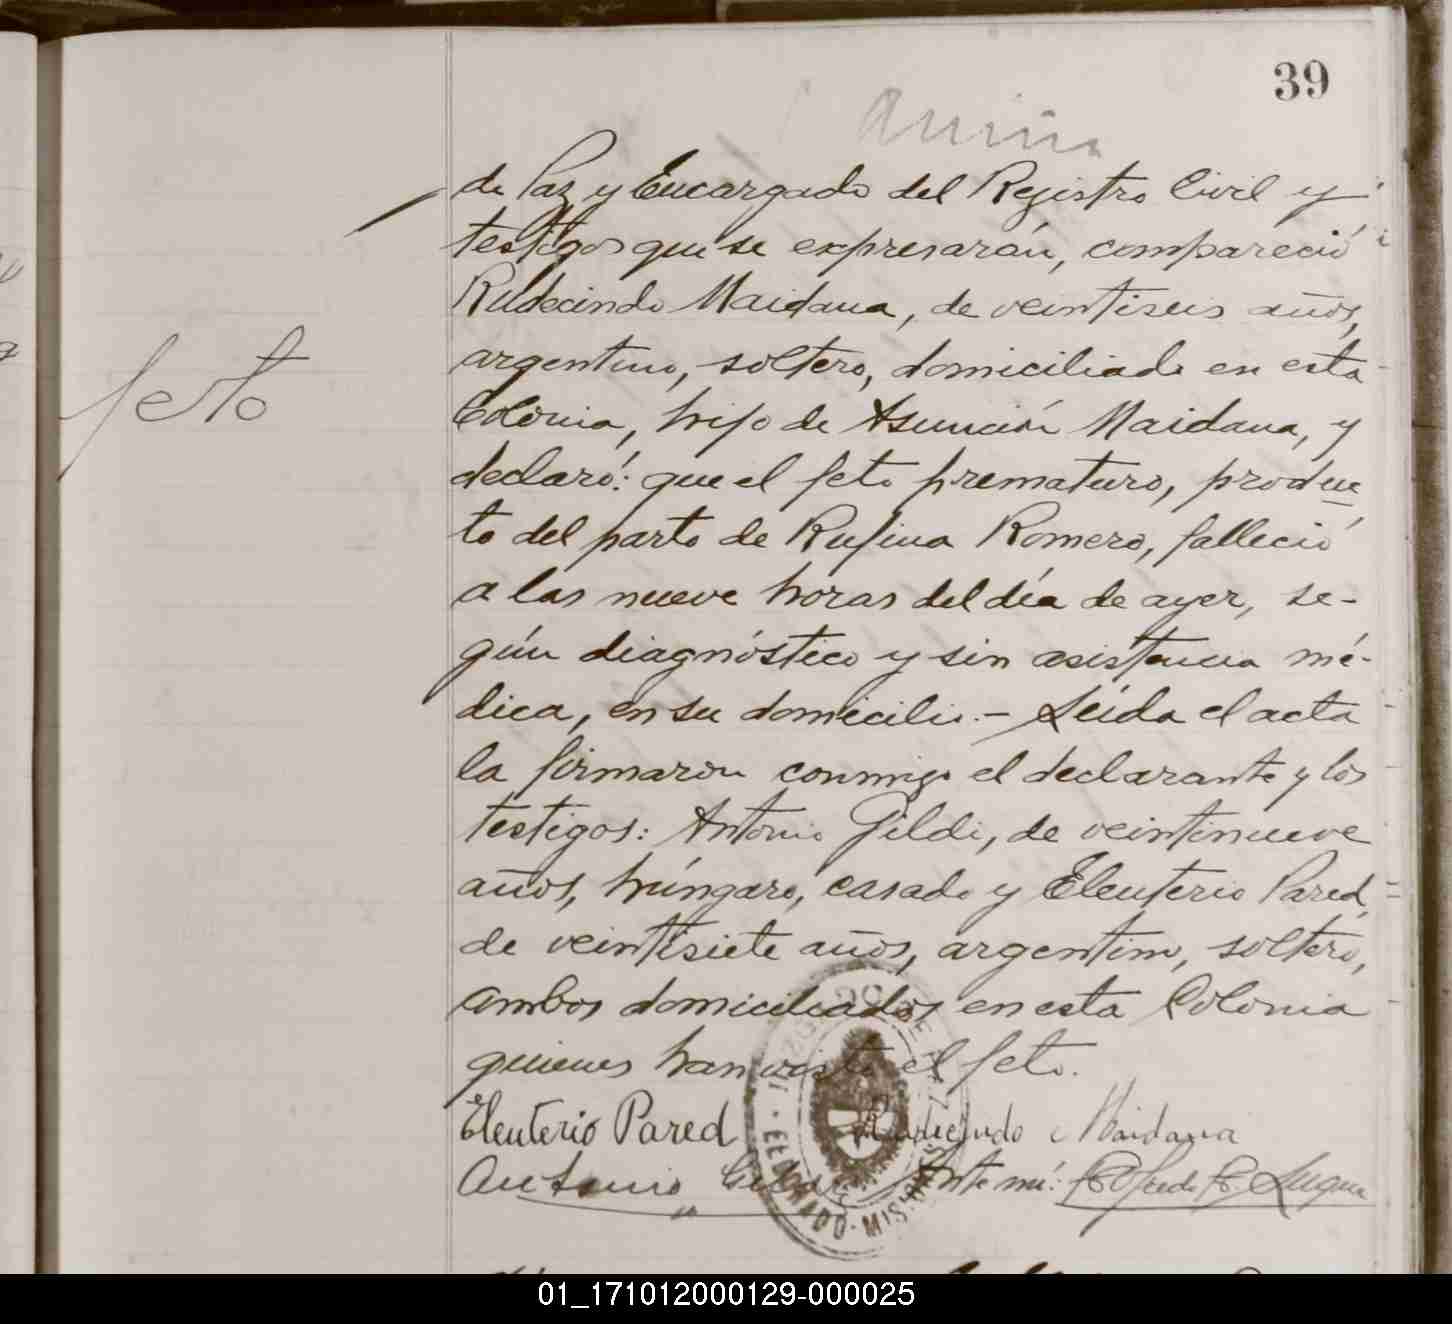 39
de Paz y Encargado del Registro Civil y
testigos que se expresarán, compareció
Rudecindo Maidana, de veintiseis años,
argentino, soltero, domiciliado en esta
feto
Colonia, hijo de Asunción Maidana, y
declaró: que el feto prematuro, produc
to del parto de Rufina Romero, falleció
a las nueve horas del día de ayer, se-
gún diagnóstico y sin asistencia mé-
dica, en su domicilio.- Leída el acta
la firmaron conmigo el declarante y los
testigos: Antonio Gildi, de veintinueve
años, húngaro, casado y Eleuterio Pared,
de veintisiete años, argentino, soltero,
ambos domiciliados en esta Colonia
quienes han visto el feto.
Eleuterio Pared Rudecindo Maidana
Antonio Ante mí:
JUZGADO DE PAZ
ELDORADO - MISIONES
01_171012000129-000025